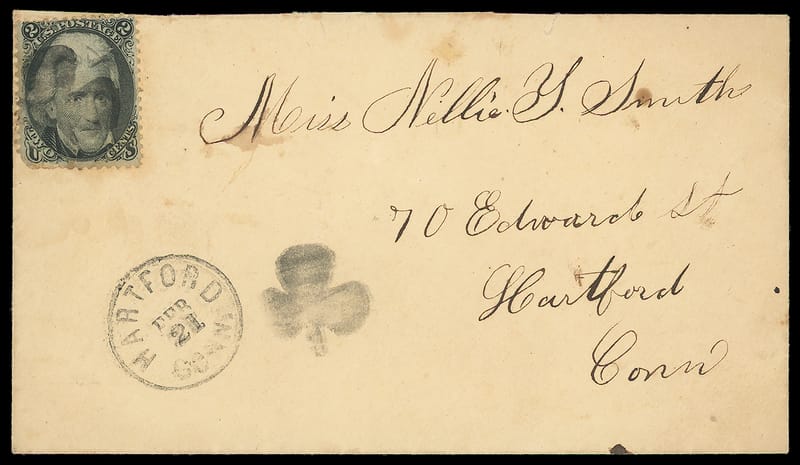 2 U.S. POSTAGE 2
TWO CENTS
U S
Miss Nellie Y. Smith
70 Edward St
Hartford
Conn
HARTFORD CONN
FEB
21